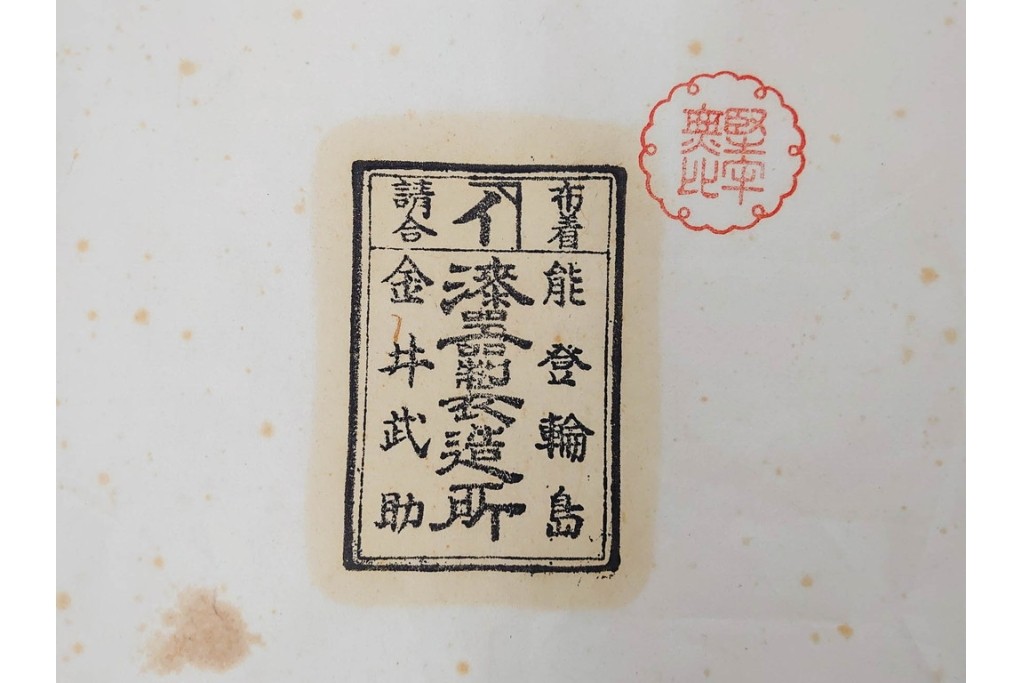 堅牢
無比
布着
イ
請合
能登輪島
漆器製造所
金井武助